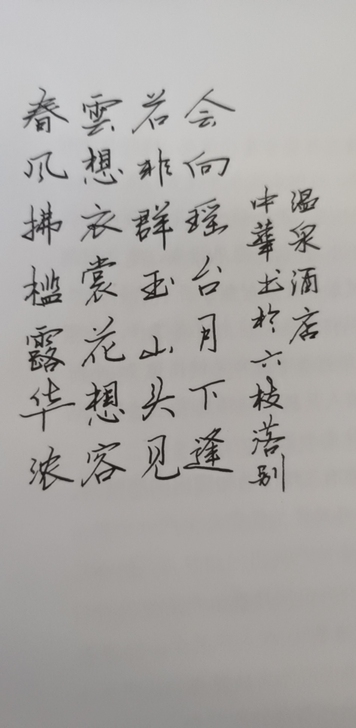 春风拂槛露华浓
雲想衣裳花想容
若非群玉山头见
会向瑶台月下逢
中華书於六枝落别
温泉酒店